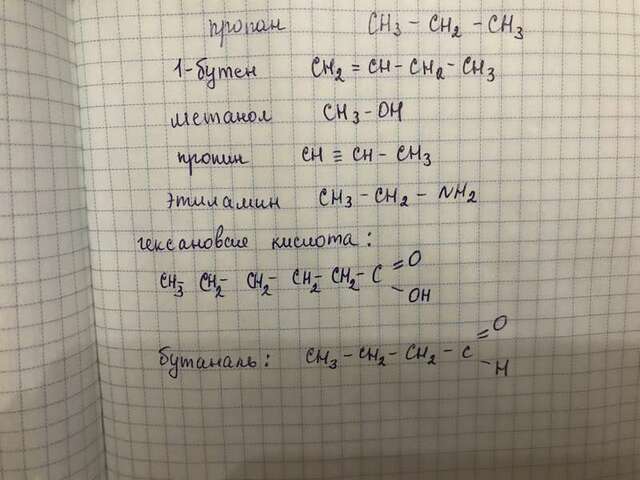 пропан CH3 - CH2 - CH3
1-бутен CH2 = CH - CH2 - CH3
метанол CH3 - OH
пропин CH ≡ CH - CH3
этиламин CH3 - CH2 - NH2
гексановая кислота:
CH3 - CH2 - CH2 - CH2 - CH2 - C = O - OH
бутаналь: CH3 - CH2 - CH2 - C = O - H